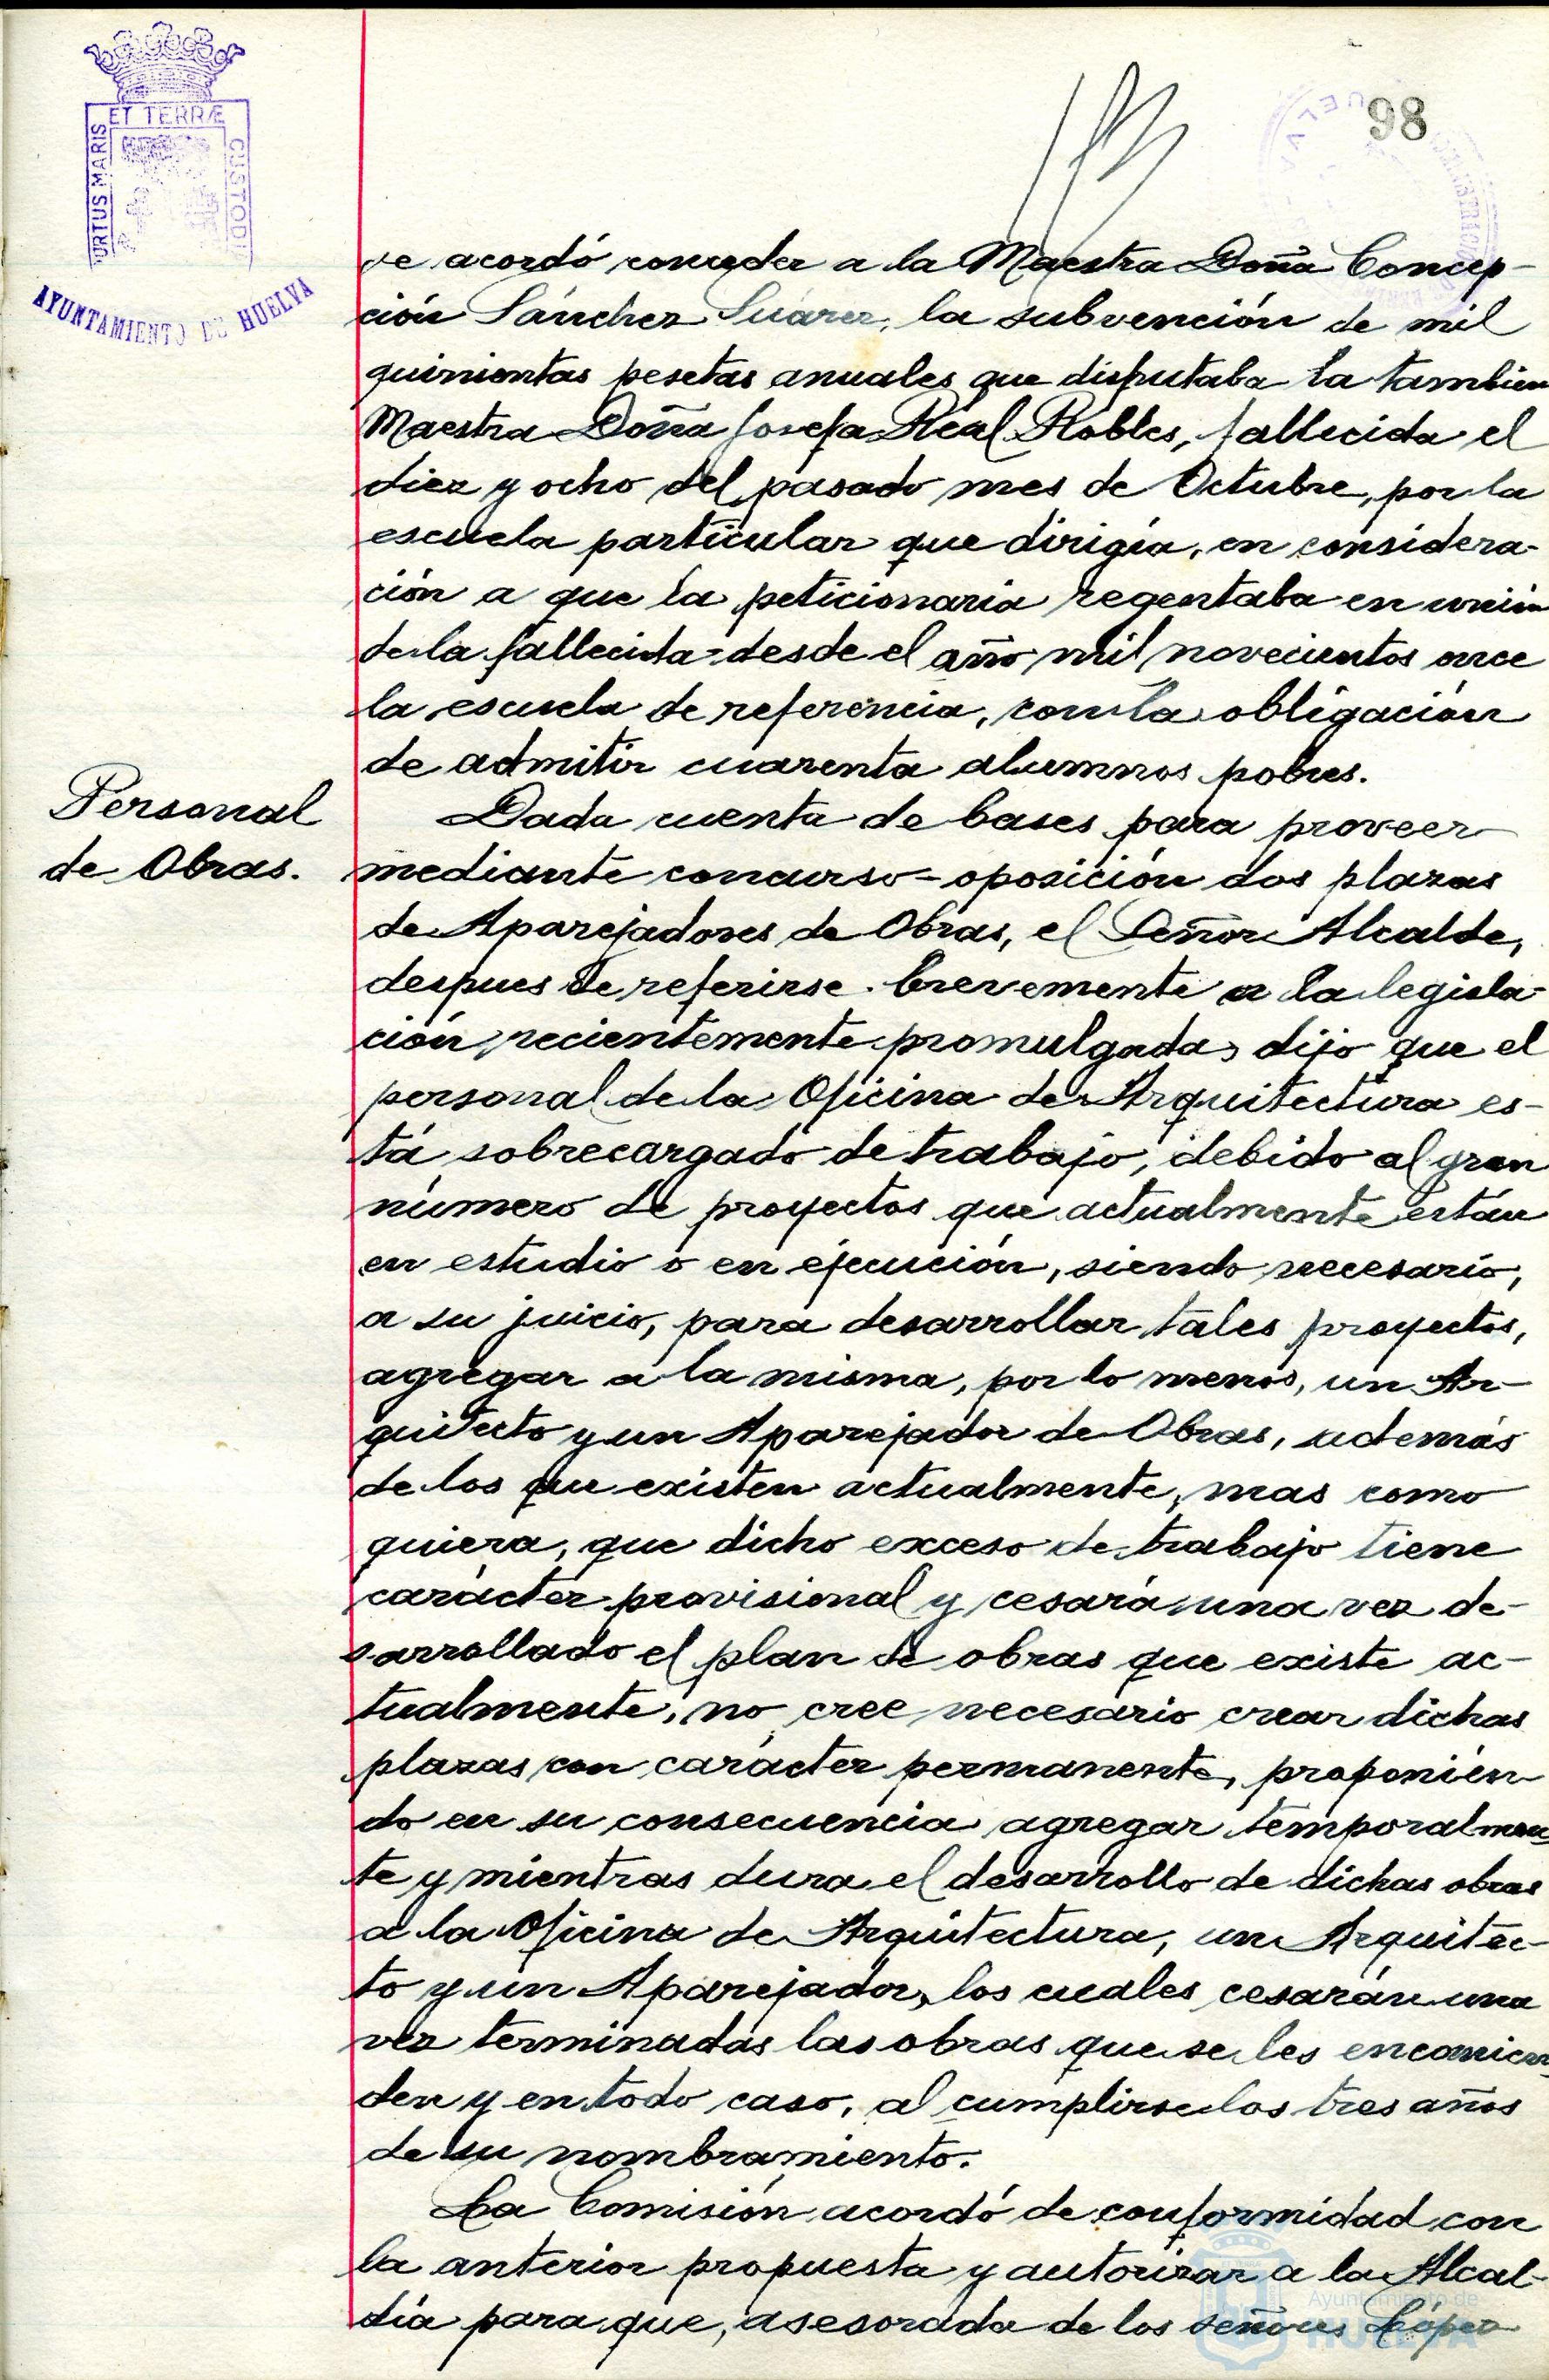 98
PORTUS MARIS
ET TERRÆ
CUSTODIA
AYUNTAMIENTO DE HUELVA
se acordó conceder a la Maestra Doña Concep-
ción Sánchez Suárez, la subvención de mil
quinientas pesetas anuales que disfrutaba la tambien
Maestra Doña Josefa Real Robles, fallecida el
diez y ocho del pasado mes de Octubre, por la
escuela particular que dirigía, en considera-
ción a que la peticionaria regentaba en unión
de la fallecida desde el año mil novecientos once
la escuela de referencia, con la obligación
de admitir cuarenta alumnos pobres.
Personal
de Obras.
Dada cuenta de bases para proveer
mediante concurso-oposición dos plazas
de Aparejadores de Obras, el Señor Alcalde,
despues de referirse brevemente a la legisla-
ción recientemente promulgada, dijo que el
personal de la Oficina de Arquitectura es-
tá sobrecargado de trabajo, debido al gran
número de proyectos que actualmente están
en estudio o en ejecución, siendo necesario,
a su juicio, para desarrollar tales proyectos,
agregar a la misma, por lo menos, un Ar-
quitecto y un Aparejador de Obras, además
de los que existen actualmente, mas como
quiera, que dicho exceso de trabajo tiene
carácter provisional y cesará una vez de-
sarrollado el plan de obras que existe ac-
tualmente, no cree necesario crear dichas
plazas con carácter permanente, proponien
do en su consecuencia agregar temporalmen
te y mientras dura el desarrollo de dichas obras
a la Oficina de Arquitectura, un Arquitec-
to y un Aparejador, los cuales cesarán una
vez terminadas las obras que se les encomien
den y en todo caso, al cumplirse los tres años
de su nombramiento.
La Comisión acordó de conformidad con
la anterior propuesta y autorizar a la Alcal-
día para que, asesorada de los señores López
Ayuntamiento de
HUELVA